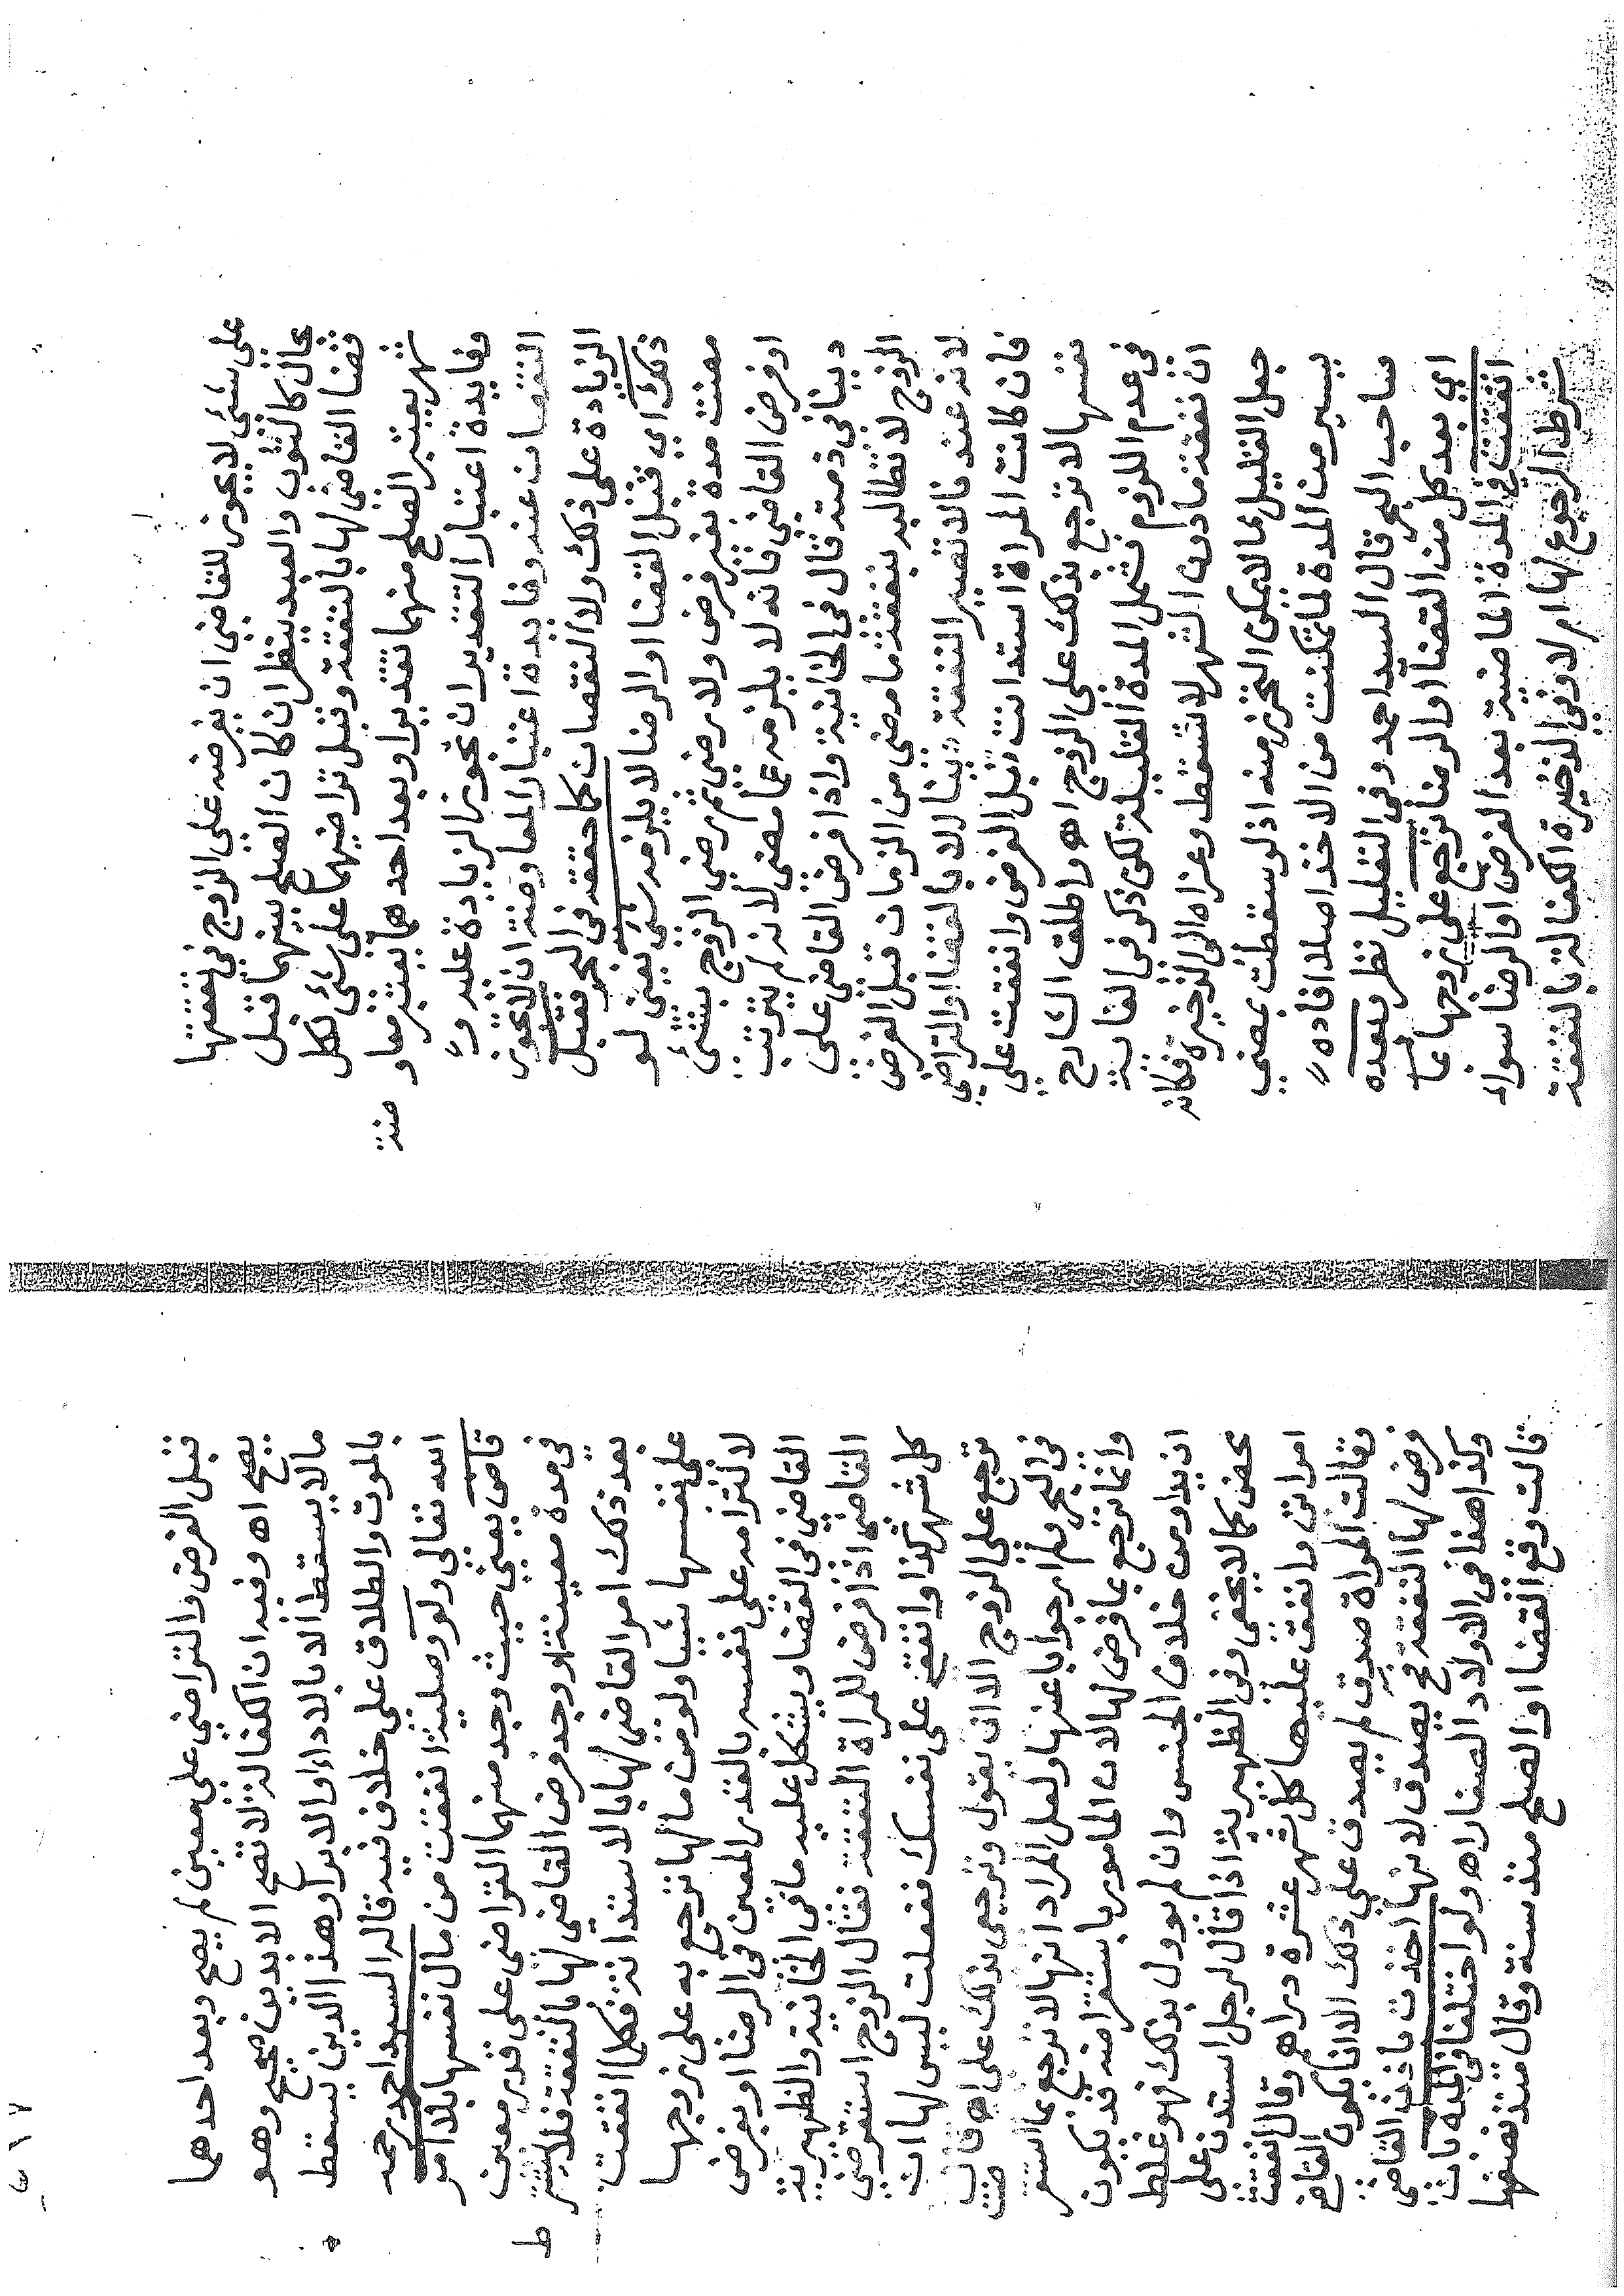 على شئ لا يجوز للقاضي ان يفرضه على الزوج في نفقتها
بحال كالثوب والعبد ينظر ان كان الصلح بينهما قبل
قضا القاضي لها بالنفقة وقبل تراضيهما على شئ لكل
شهر يعتبر الصلح منهما تقديرا وبعد احدهما يعتبر معاو
ضة
وفايدة اعتبار التقدير ان تجوز الزيادة عليه و
النقصان عنه وفايدة اعتبار المعاوضة ان لا تجوز
الزيادة على ذلك ولا النقصان كما حققه في البحر فقبل
ذلك اي قبل القضا او الرضا لا يلزمه شئ يعني لو
مضت مدة بغير فرض ولا رضي ثم رضي الزوج بشئ
او فرض القاضي فانه لا يلزمه عما مضى لانه لم يترتب
دينا في ذمته قال في الخانية واذا فرض القاضي على
الزوج لا تطالبه بنفقة ما مضى من الزمان قبل الفرض
لان عندنا لا تصير النفقة دينا الا بالقضا او التراضي
فان كانت المراة استدانت قبل الفرض وانفقت على
نفسها لا ترجع بذلك على الزوج اهـ واطلق الشارح
في عدم اللزوم فشمل المدة القليلة لكن ذكر في الغاية
ان نفقة ما دون الشهر لا تسقط وعزاه الى الذخيرة فكانه
جعل القليل مما لا يمكن التحرز منه اذ لو سقطت بمضي
يسير من المدة لما تمكنت من الاخذ اصلا افاده
صاحب البحر قال السيد احمد وفي التعليل نظر وبعده
اي بعد كل من القضا او الرضا ترجع على زوجها بما
انفقت في المدة الماضية بعد الفرض او الرضا سواء
شرط الرجوع لها ام لا وفي الذخيرة الكفالة بالنفقة
قبل الفرض والتراضي على معين لم يصح وبعد احدهما
يصح اهـ وفيه ان الكفالة لا تصح الا بدين صحيح وهو
ما لا يسقط الا بالاداء او الابرا وهذا الدين يسقط
بالموت والطلاق على خلاف فيه قاله السيد احمد رحمه
الله تعالى ولو وصلية انفقت من مال نفسها بلا امر
قاض يعني حيث وجد منهما التراضي على قدر معين
في مدة معينة او وجد فرض القاضي لها بالنفقة فلا يشتر
ط
بعد ذلك امر القاضي لها بالاستدانة فكلما انفقت
على نفسها شيا ولو من مالها ترجع به على زوجها
لالتزامه على نفسه بالقدر المعين في الرضا او بفرض
القاضي في القضا ويشكل عليه ما في الخانية والظهيرية
القاضي اذا فرض للمراة النفقة فقال الزوج استقرضي
كل شهر كذا وانفقي على نفسك ففعلت ليس لها ان
ترجع على الزوج الا ان يقول وترجعي بذلك علي اهـ قال
في البحر ولم ار جوابا عنها ولعل المراد انها لا ترجع بما استقر
ضت
وانما ترجع بما فرض لها لان المامور باستقراضه قد يكون
ازيد او من خلاف الجنس وان لم يؤول بذلك فهو غلط
محض كما لا يخفى وفي الظهيرية اذا قال لرجل استدن على
امراتي وانفق عليها كل شهر عشرة دراهم وقال انفقت
وقالت المراة صدق لم يصدق على ذلك الا ان يكون القاضي
فرض لها النفقة فح يصدق لانها اخذت باذن القاضي
وكذا هذا في الاولاد الصغار اهـ ولو اختلفا في المدة بان
قالت وقع القضا او الصلح منذ سنة وقال منذ نصفها
٢١٧